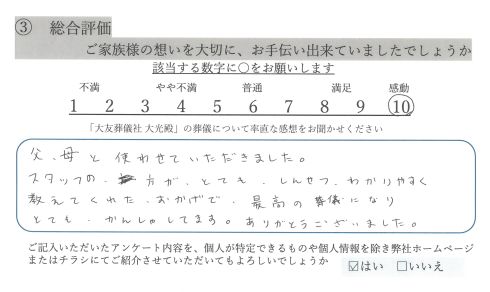 ③ 総合評価
ご家族様の想いを大切に、お手伝い出来ていましたでしょうか
該当する数字に○をお願いします
不満 やや不満 普通 満足 感動
1 2 3 4 5 6 7 8 9 10
「大友葬儀社 大光殿」の葬儀について率直な感想をお聞かせください
父、母と使わせていただきました。
スタッフの、方が、とても、しんせつ、わかりやすく
教えてくれた、おかげで、最高の葬儀になり
とても、かんしゃしてます。ありがとうございました。
ご記入いただいたアンケート内容を、個人が特定できるものや個人情報を除き弊社ホームページ
またはチラシにてご紹介させていただいてもよろしいでしょうか ☑はい □いいえ